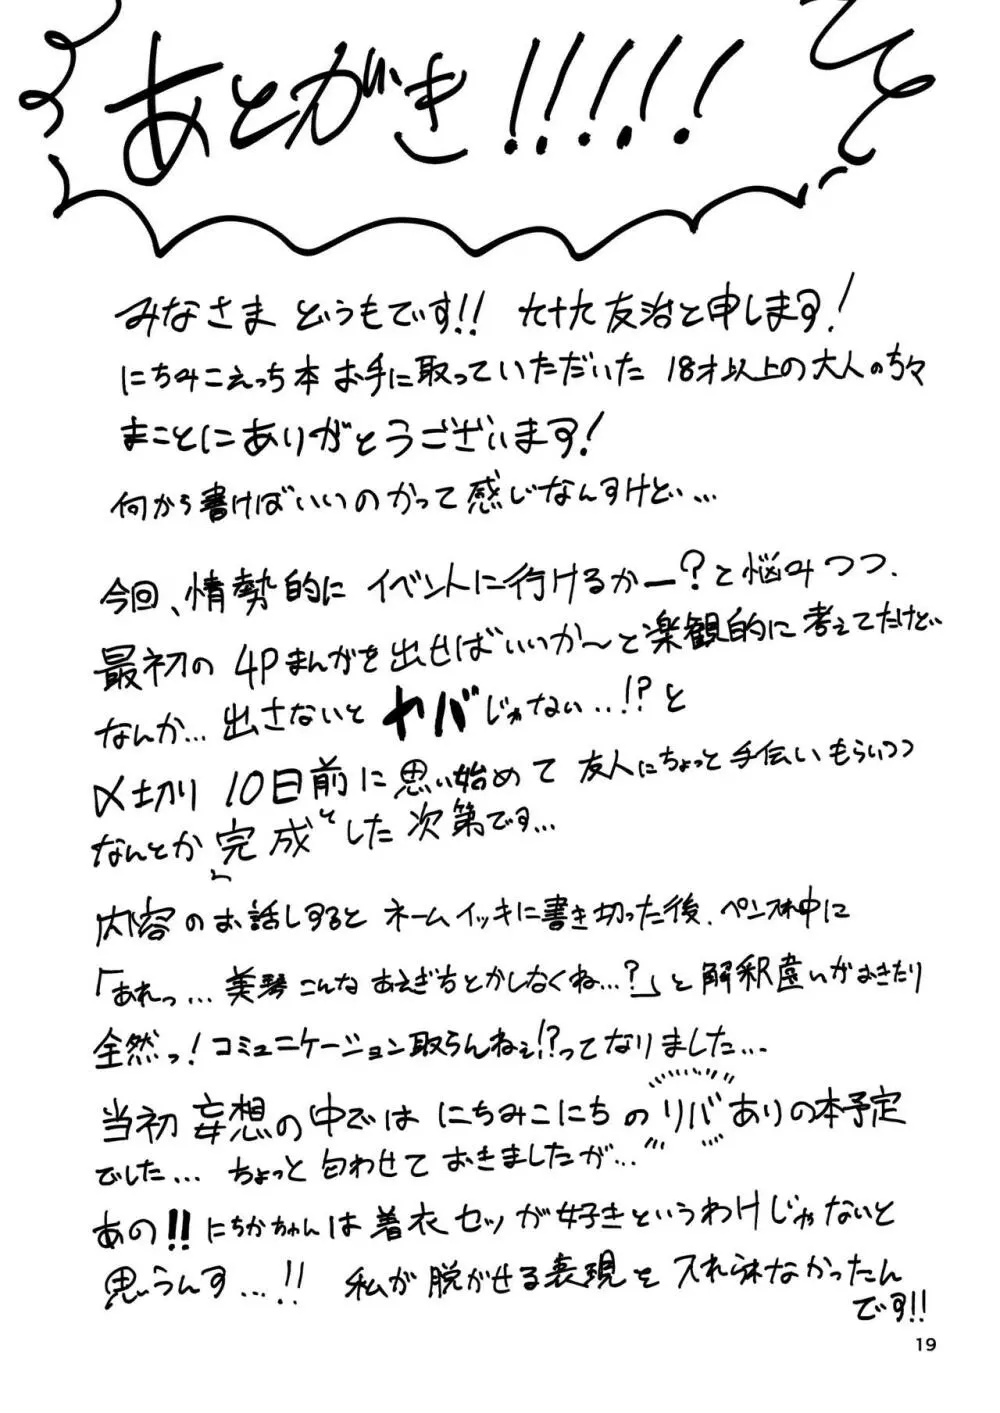 あとがき!!!!!
みなさま どうもです!! 九十九友治と申します!
にちみこえっち本 お手に取っていただいた 18才以上の大人の方々
まことにありがとうございます!
何から書けばいいのかって感じなんすけど…
今回、情勢的に イベントに行けるかー?と悩みつつ、
最初の 4Pまんがを出せばいいか〜と楽観的に考えてたけど…
なんか… 出さないと ヤバじゃない…!?と
〆切り 10日前に思い始めて 友人にちょっと手伝いもらいつつ
なんとか完成とした次第です…
内容のお話しすると ネームイッキに書き切った後、ペン入れ中に
「あれっ… 美琴こんな あえぎ方とかしなくね…?」と解釈違いがおきたり
全然っ! コミュニケーション取らんねぇ!?ってなりました…
当初 妄想の中では にちみこにちの リバありの本予定
でした… ちょっと匂わせて おきましたが…
あの!! にちかちゃんは着衣セッが好きというわけじゃないと
思うんす…!! 私が脱がせる表現を入れられなかったん
です!!
19